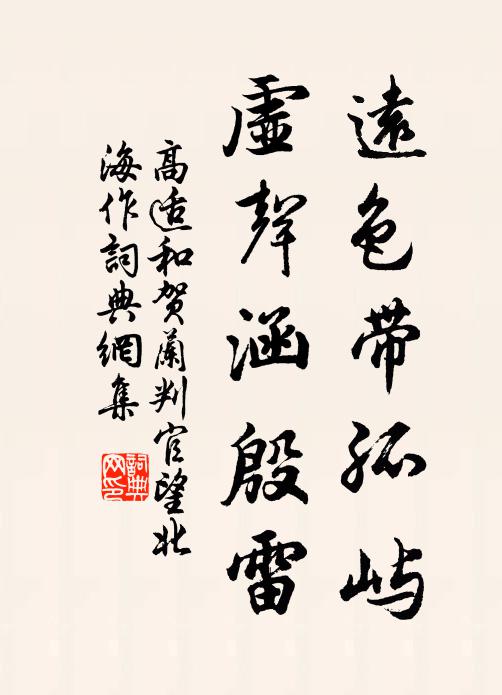 遠色帶孤屿
虛聲涵殷雷
高适和贺蘭判官望北
海作詞典網集
詞典
网印